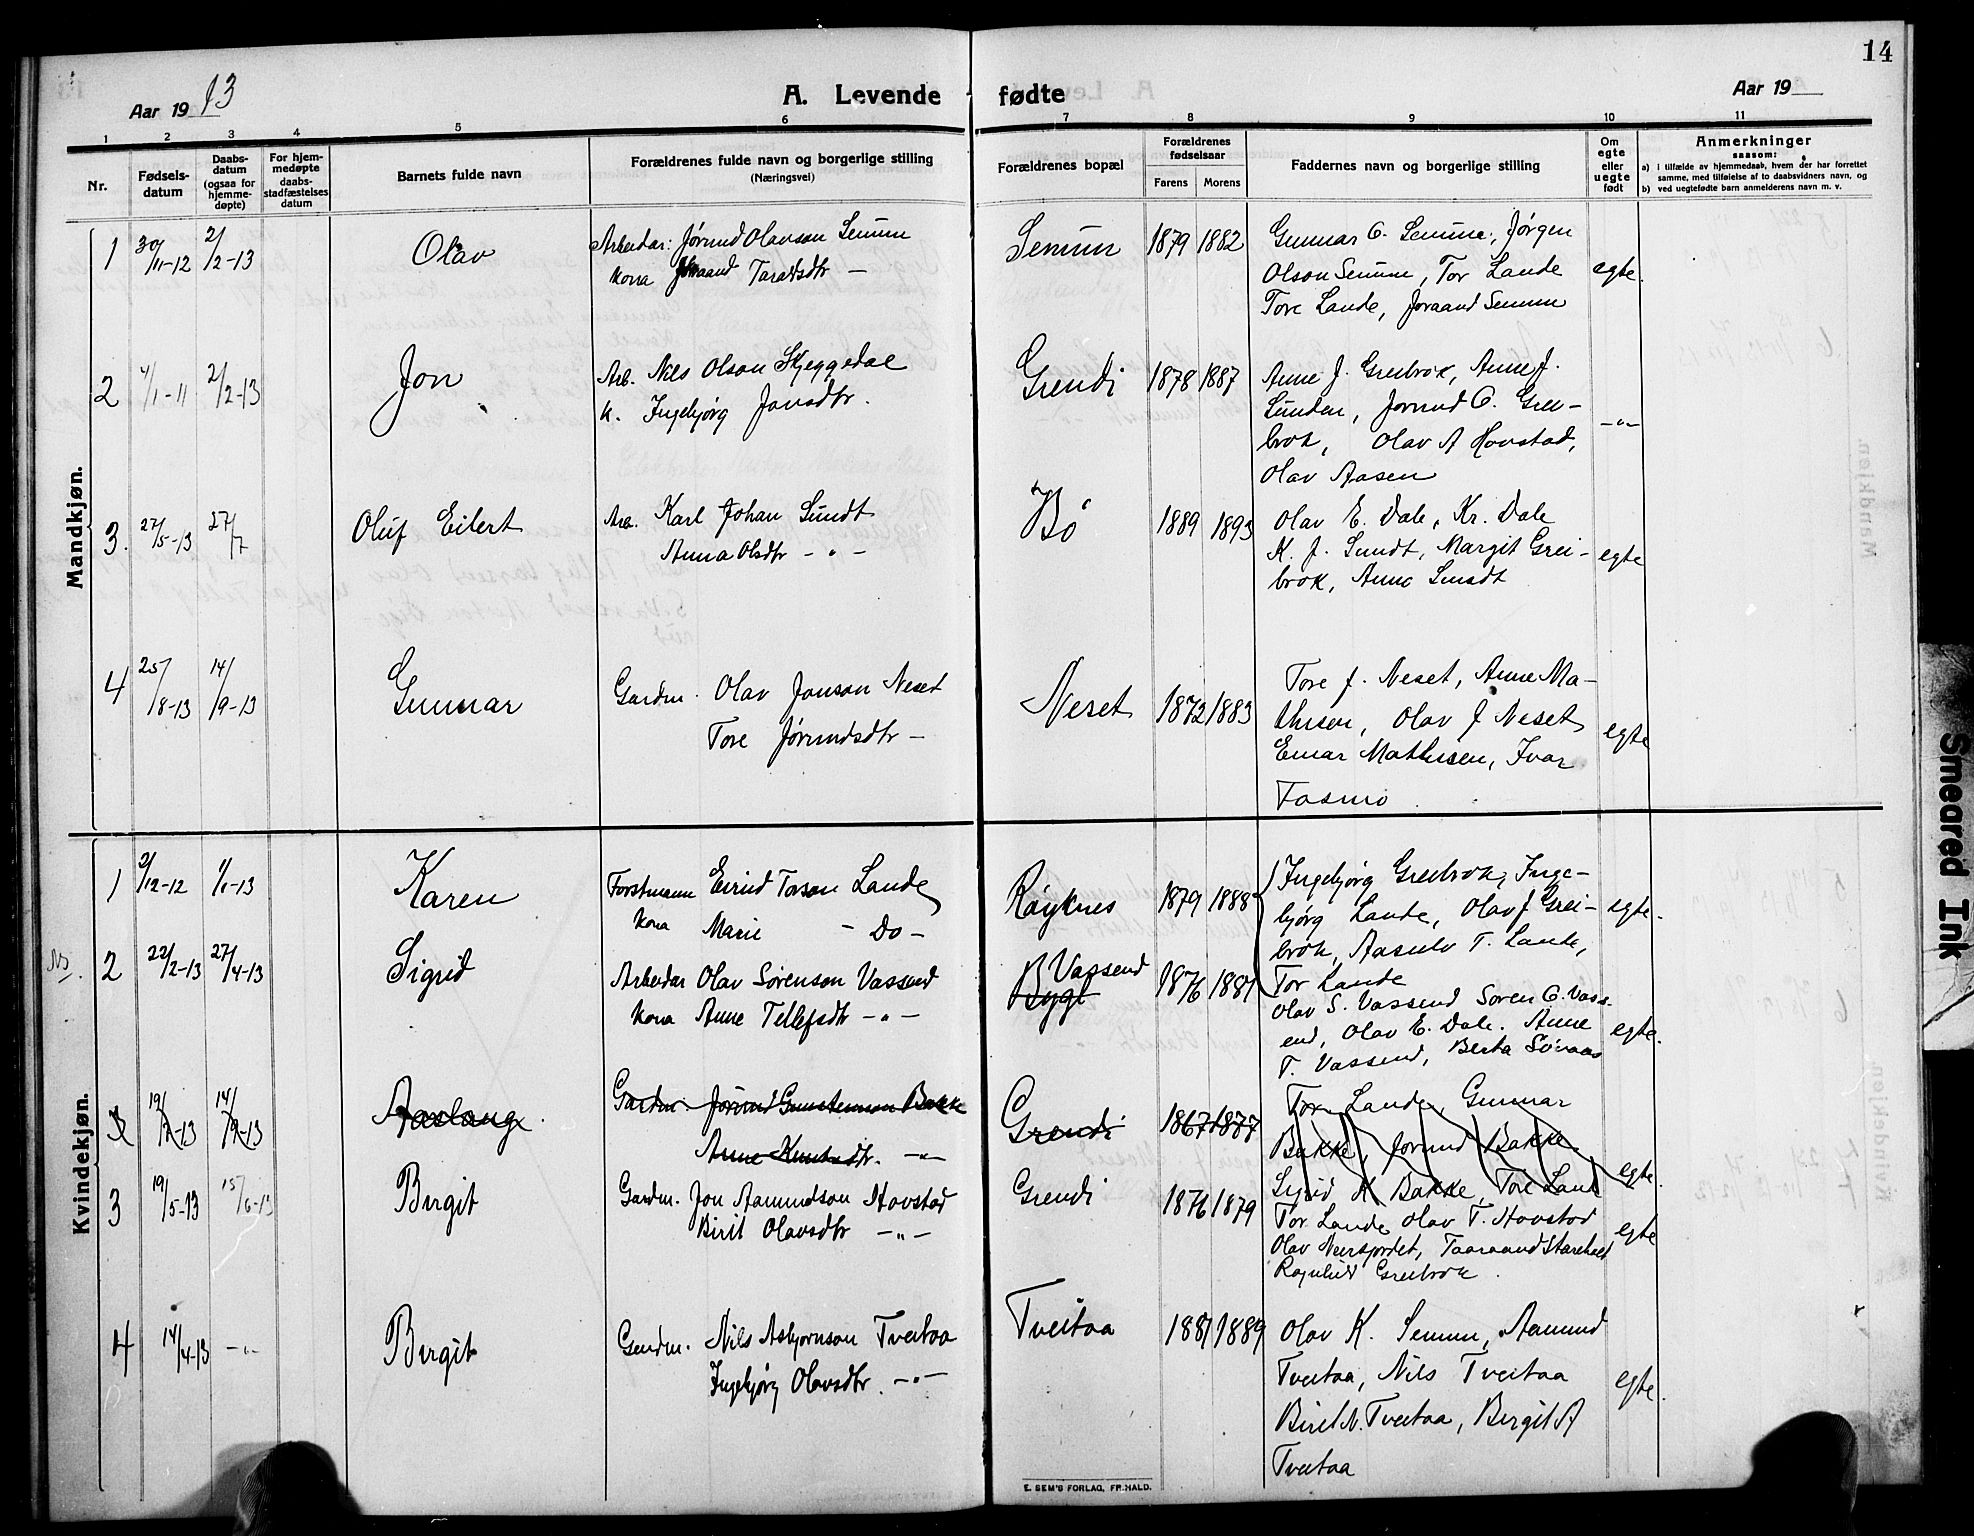 14
Aar 1913
A. Levende fødte
Aar 19
1 2 3 4 5 6 7 8 9 10 11
Nr.
Fødsels-
datum
Daabs-
datum
(ogsaa for
hjemme-
døpte)
For hjem-
medøpte
daabs-
stadfæstelses
datum
Barnets fulde navn
Forældrenes fulde navn og borgerlige stilling
(Næringsvei)
Forældrenes bopæl
Forældrenes
fødselsaar
Farens Morens
Faddernes navn og borgerlige stilling
Om
egte
eller
uegte
født
Anmerkninger
saasom:
a) i tilfælde av hjemmedaab, hvem der har forrettet
samme, med tilføielse af to daabsvidners navn, og
b) ved uegtefødte barn anmelderens navn m. v.
Mandkjøn.
1 30/11-12 2/2-13 Olav Arbeidar: Jørund Olavson Semum
kona Joraand Taraldsdtr —
Semum 1879 1882 Gunnar O. Semum, Jørgen
Olson Semum, Tor Lande
Tore Lande, Joraand Semum
egte.
2 4/1-11 2/2-13 Jon Arb. Nils Olson Skjeggedal
k. Ingebjørg Jonsdtr.
Grendi 1878 1887 Anne J. Greibrok, Anne J.
Sunden, Jorund O. Grei-
brok, Olav A Hovstad,
Olav Aasen
—"—
3. 27/5-13 27/7 Oluf Eilert Arb. Karl Johan Sundt
Anna Olsdtr — " —
Bø 1889 1893 Olav E. Dale, Kr. Dale
K. J. Sundt, Margit Grei-
brok, Anna Sundt
egte
4 25/8-13 14/9-13 Gunnar Gardm. Olav Jonson Neset
Tore Jørundsdtr —
Neset 1872 1883 Tore J. Neset, Anne Ma-
thisen, Olav J Neset
Einar Mathisen, Ivar
Tasmo.
egte
Kvindekjøn.
1 2/12-12 1/1-13 Karen Forstmann Eivind Torson Lande
kona Marie — Do —
Røyknes 1879 1888 Ingebjørg Greibrok, Inge-
bjørg Lande, Olav J Grei-
brok, Aasulv T. Lande,
Tor Lande
egte.
NB. 2 22/2-13 27/4-13 Sigrid Arbeidar Olav Sørenson Vassend
kona Anne Tellefsdtr — " —
Vassend
Bygl 1876 1881 Olav S. Vassend Søren O. Vass-
end, Olav E. Dale. Anne
T. Vassend, Berta Sønaas
egte.
3 19/7-13 14/9-13 Aaslaug. Gardm. Jørund Gunstenson Bakke
Anne Knutsdtr. —"—
Grendi 1867 1877 Tor Lande, Gunnar
Bakke, Jorund Bakke
Sigrid K Bakke, Tore Land
egte.
3 19/5-13 15/6-13 Birgit Gardm. Jon Aamundson Hovstad
Birit Olavsdtr —"—
Grendi 1876 1879 Tor Lande Olav T. Hovstad
Olav Neirsjordet, Taaraand Stareheet
Ragnhild Greibrok.
egte
4 14/4-13 —"— Birgit Gardm. Nils Asbjørnson Tveitaa
Ingebjørg Olavsdtr. —"—
Tveitaa 1881 1889 Olav K. Semum, Aamund
Tveitaa, Nils Tveitaa
Birit N. Tveitaa, Birgit A
Tveitaa
egte.
E. SEM'S FORLAG, FR.HALD.
Smeared Ink